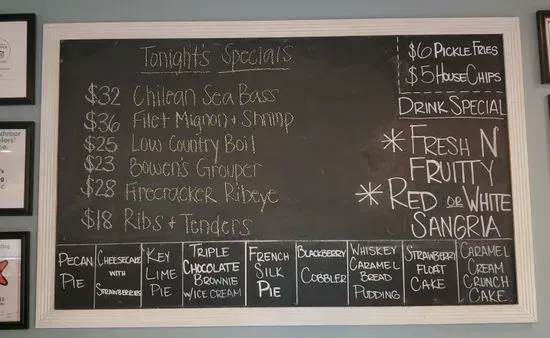 Tonight's Specials
$32 Chilean Sea Bass
$36 Filet Mignon + Shrimp
$25 Low Country Boil
$23 Bowen's Grouper
$28 Firecracker Ribeye
$18 Ribs + Tenders
$6 PICKLE FRIES
$5 HOUSE CHIPS
DRINK SPECIAL
* FRESH N
FRUITTY
* RED OR WHITE
SANGRIA
PECAN
PIE
CHEESECAKE
WITH
STRAWBERRIES
KEY
LIME
PIE
TRIPLE
CHOCOLATE
BROWNIE
W/ICE CREAM
FRENCH
SILK
PIE
BLACKBERRY
COBBLER
WHISKEY
CARAMEL
BREAD
PUDDING
STRAWBERRY
FLOAT
CAKE
CARAMEL
CREAM
CRUNCH
CAKE